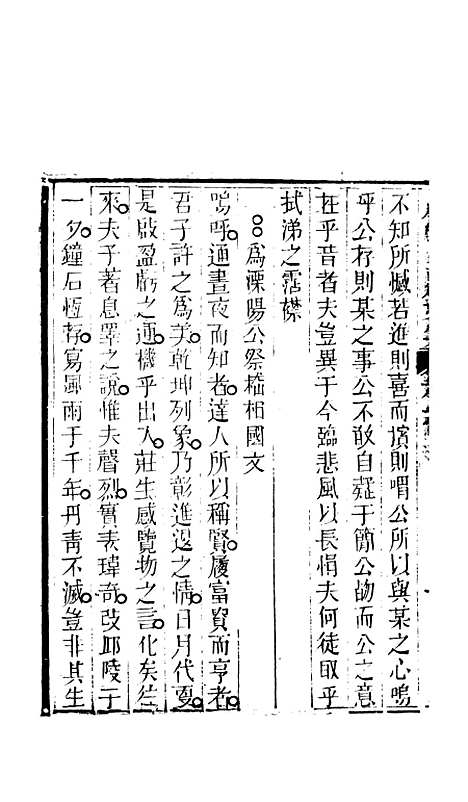 不知所憾若進則喜而擯則喟公所以與某之心嗚
乎公存則某之事公不敢自疑于簡公歾而公之意
在乎昔者夫豈異于今臨悲風以長悁夫何徒取乎
拭涕之霑襟
○○爲溧陽公祭嵇相國文
嗚呼通晝夜而知者達人所以稱賢履富貴而亨者
君子許之爲美乾坤列象乃彰進退之情日月代更
是啟盈虧之運機乎出入莊生感覽物之言化矣往
來夫子著息壤之說惟夫聲烈實表瑋奇改邱陵于
一夕鐘石恆存寫風雨于千年丹青不滅豈非其生